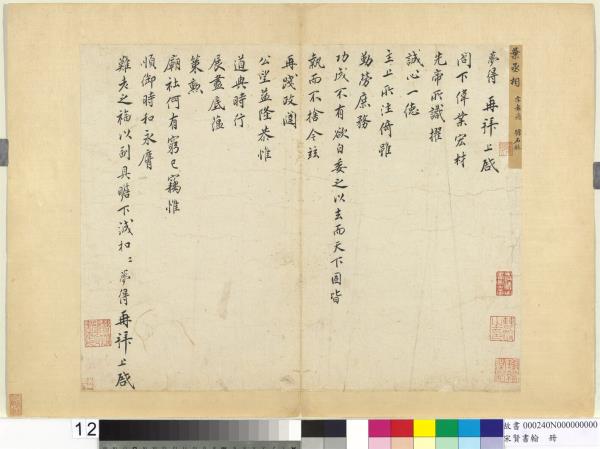 葉丞相
夢得再拜上啟
閤下偉業宏材
先帝所識擢
誠心一德
主上所注倚雖
勤勞庶務
功成不有欲自委之以去而天下固皆
執而不捨今茲
再踐政途
公望益隆恭惟
道與時行
展盡底蘊
策勳
廟社何有窮已竊惟
順御時和永膺
難老之福以副具瞻下誠和〻夢得再拜上啟
12
故書 000240N000000000
宋賢書翰 冊